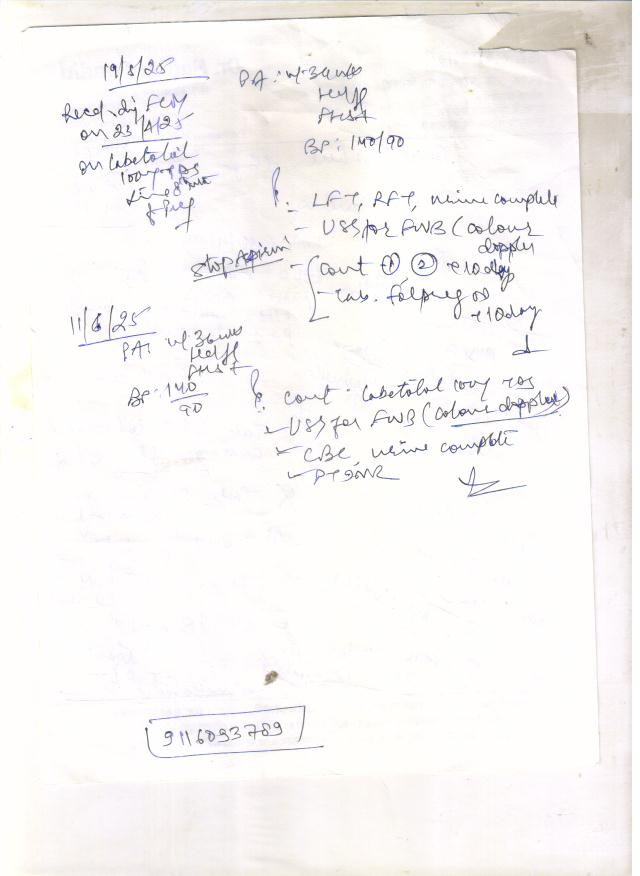 19/5/25
PA: ut 34 wks
FHS+
BP: 140/90
on 23/4/25
on labetalol
100mg TDS
since 8th mth
of preg
LFT, RFT, urine complete
- USS for FWB (colour doppler
Stop Aspirin
- Cont ① ② x 10 day
- Tab. OD
x 10 day
11/6/25
PA: ut 36 wks
FHS+
BP: 140/90
Cont. labetalol 100mg TDS
- USS for FWB (colour doppler)
- CBC, urine complete
- PT INR
9116093789